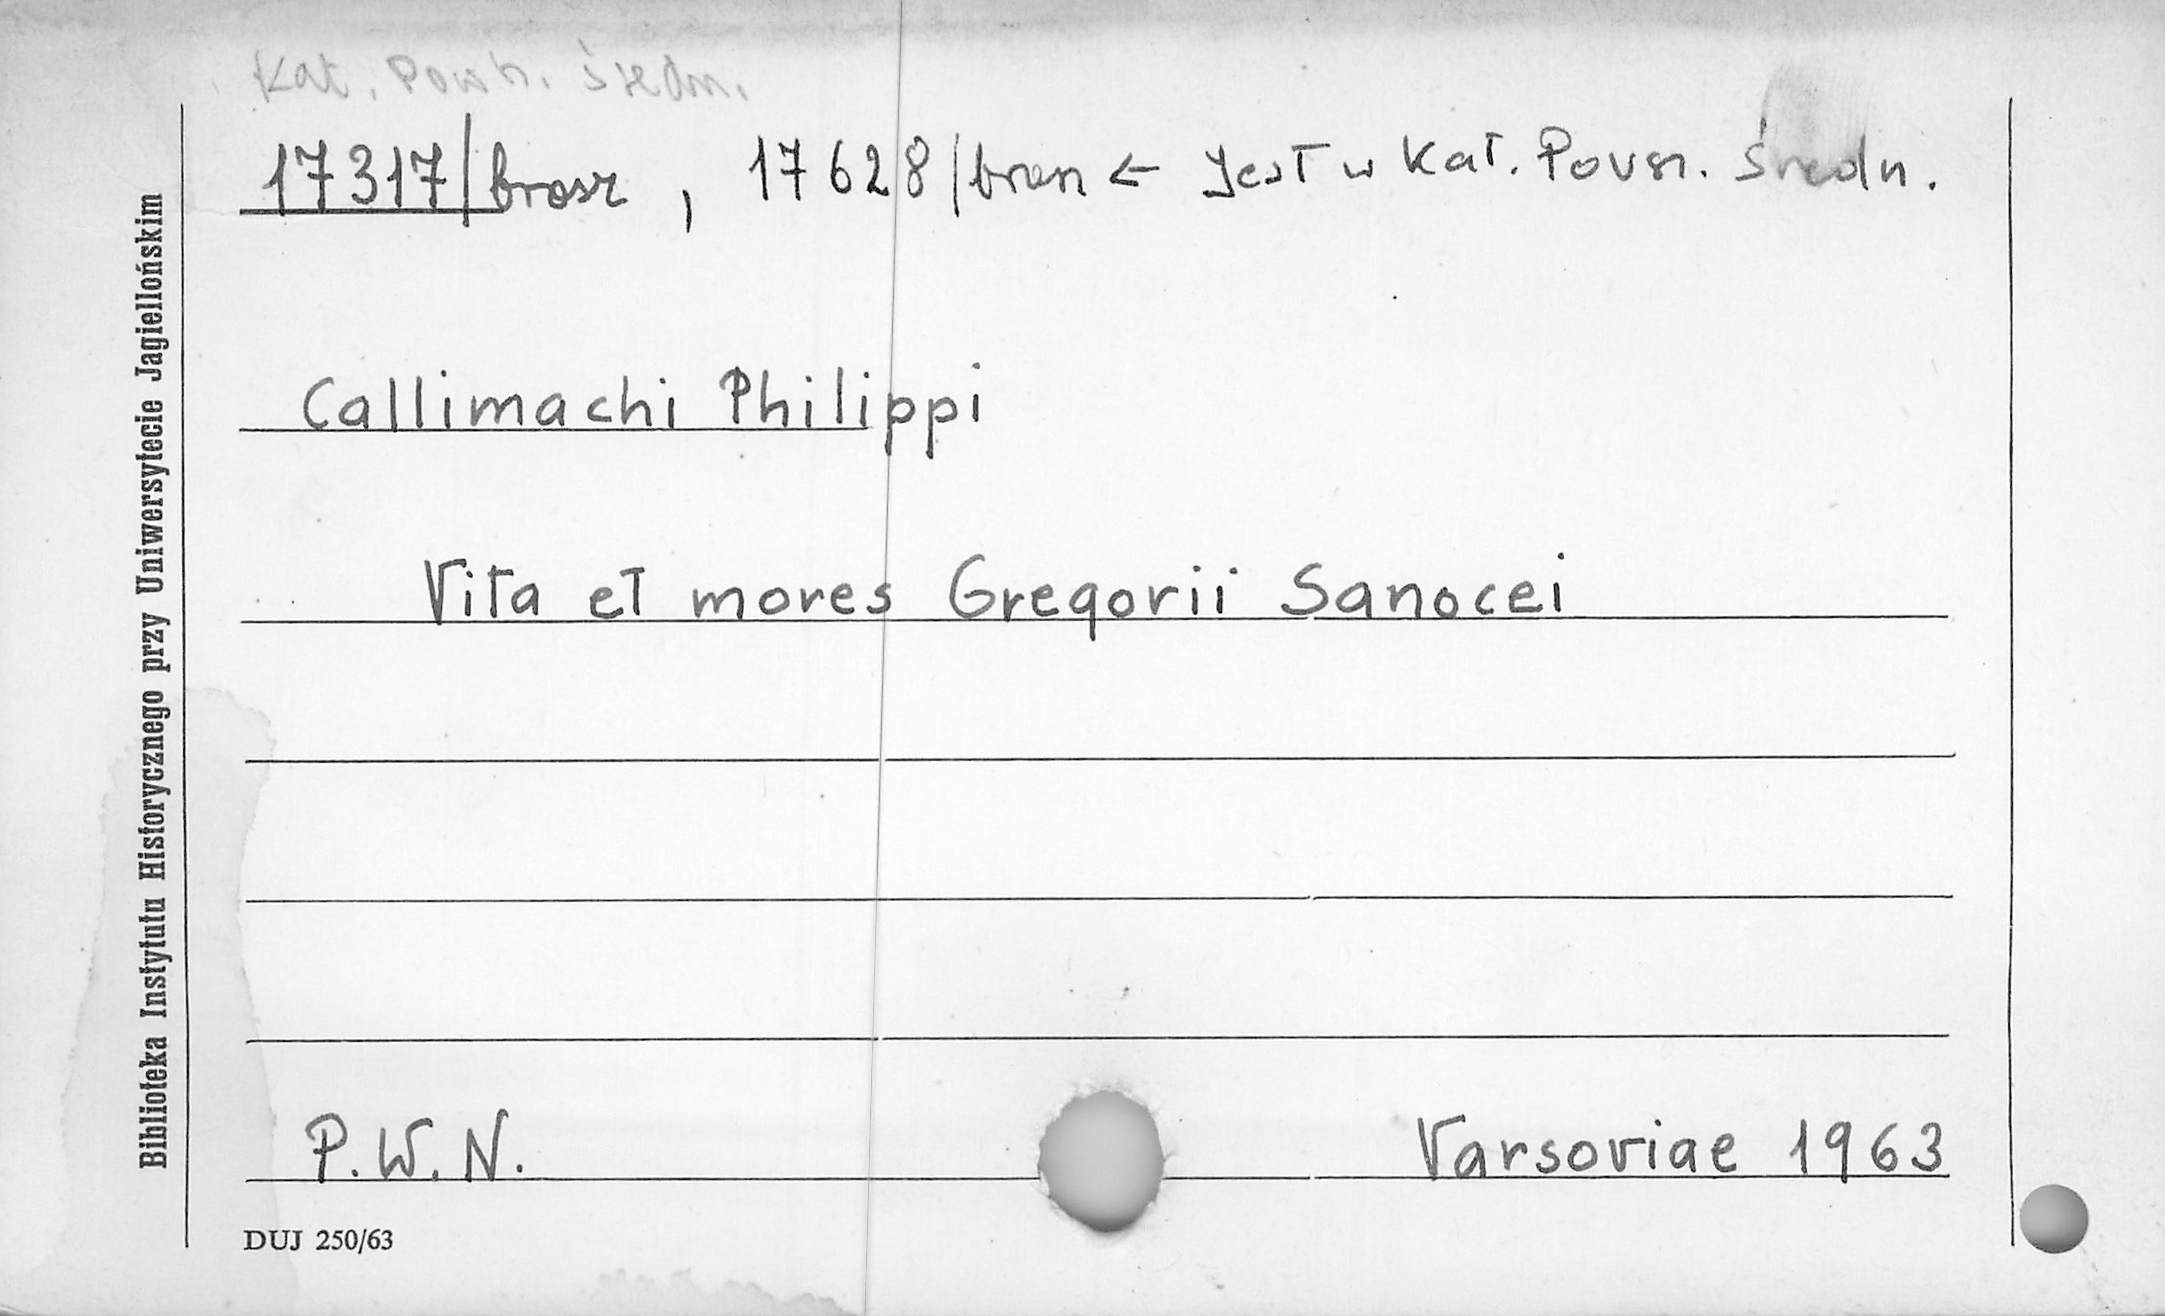 Kat. Powsz. średn.
17317/brosz , 17628/bran ← Jest w Kat. Powsz. Średn.
Callimachi Philippi
Vita et mores Gregorii Sanocei
P.W.N. Varsoviae 1963
DUJ 250/63
Biblioteka Instytutu Historycznego przy Uniwersytecie Jagiellońskim